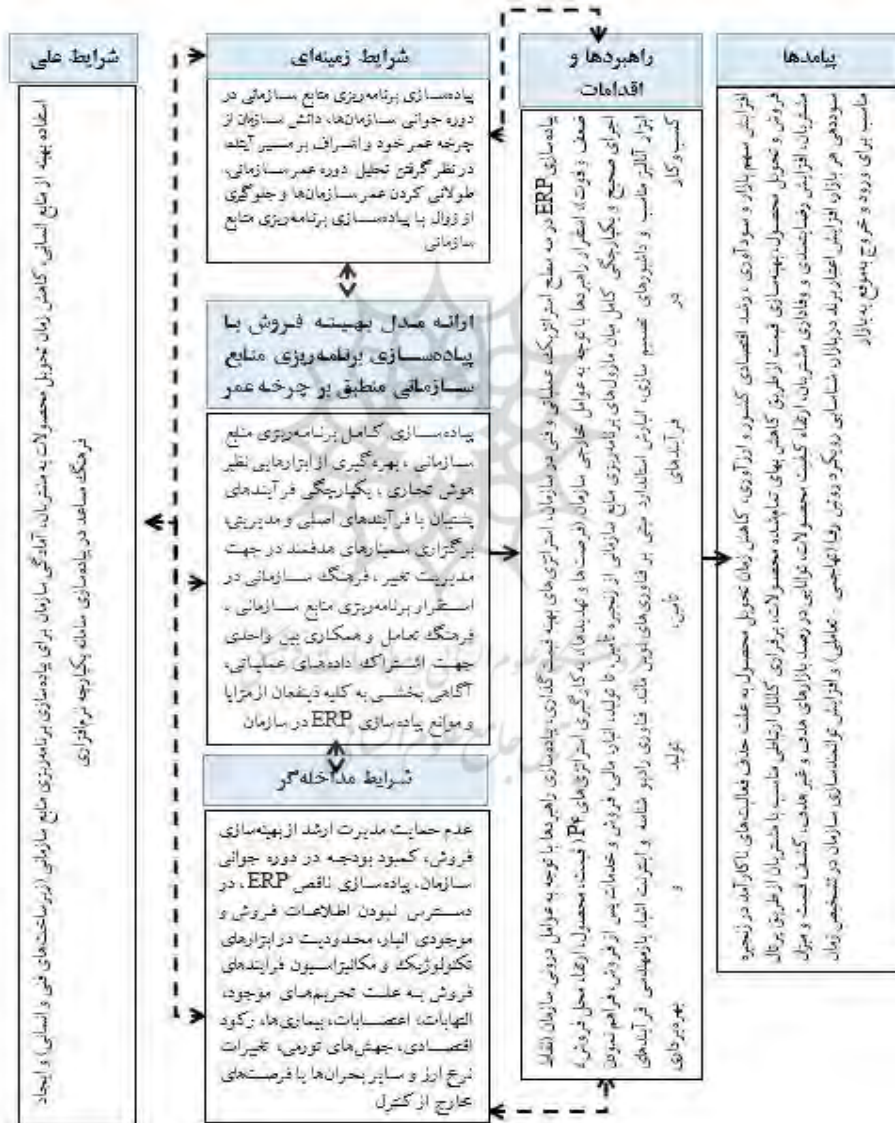 شرایط علی
استفاده بهینه از منابع انسانی، کاهش زمان تحویل محصولات به مشتریان، آمادگی سازمان برای پیاده‌سازی برنامه‌ریزی منابع سازمانی (زیرساخت‌های فنی و انسانی) و ایجاد
فرهنگ مساعد در پیاده‌سازی سامانه یکپارچه نرم‌افزاری
شرایط زمینه‌ای
پیاده‌سازی برنامه‌ریزی منابع سازمانی در
دوره جوانی سازمان‌ها، دانش سازمان از
چرخه عمر خود و اشراف بر مسیر آینده،
در نظر گرفتن تحلیل دوره عمر سازمانی،
طولانی کردن عمر سازمان‌ها و جلوگیری
از زوال با پیاده‌سازی برنامه‌ریزی منابع
سازمانی
ارائه مدل بهینه فروش با
پیاده‌سازی برنامه‌ریزی منابع
سازمانی منطبق بر چرخه عمر
پیاده‌سازی کامل برنامه‌ریزی منابع
سازمانی ، بهره گیری از ابزارهایی نظیر
هوش تجاری ، یکپارچگی فرآیندهای
پشتیبان با فرآیندهای اصلی و مدیریتی،
برگزاری سمینارهای هدفمند در جهت
مدیریت تغییر ، فرهنگ سازمانی در
استقرار برنامه‌ریزی منابع سازمانی ،
فرهنگ تعامل و همکاری بین واحدی
جهت اشتراک داده‌های عملیاتی،
آگاهی بخشی به کلیه ذینفعان از مزایا
و موانع پیاده سازی ERP در سازمان
شرایط مداخله‌گر
عدم حمایت مدیریت ارشد از بهینه‌سازی
فروش، کمبود بودجه در دوره جوانی
سازمان، پیاده‌سازی ناقص ERP ، در
دسترس نبودن اطلاعات فروش و
موجودی انبار، محدودیت در ابزارهای
تکنولوژیک و مکانیزاسیون فرایندهای
فروش به علت تحریم‌های موجود،
التهابات، اعتصابات، بیماری‌ها، رکود
اقتصادی، جهش‌های تورمی، تغییرات
نرخ ارز و سایر بحران‌ها یا فرصت‌های
خارج از کنترل
راهبردها و
اقدامات
پیاده‌سازی ERP در سه سطح استراتژیک، عملیاتی و فنی در سازمان، استراتژی‌های بهینه قیمت گذاری، پیاده‌سازی راهبردها با توجه به عوامل درونی سازمان (نقاط
ضعف و قوت)، استقرار راهبردها با توجه به عوامل خارجی سازمان (فرصت‌ها و تهدیدها)، به کارگیری استراتژی‌های P4 (قیمت، محصول، ارتقا، محل فروش)،
اجرای صحیح و یکپارچگی کامل میان ماژول‌های برنامه‌ریزی منابع سازمانی از زنجیره تأمین، تا تولید، انبار، مالی، فروش و خدمات پس از فروش، فراهم نمودن
ابزار آنالیز مناسب و داشبوردهای تصمیم سازی، انبارش استاندارد مبتنی بر فناوری‌های نوین مانند فناوری رادیو شناسه و اینترنت اشیا، بازمهندسی فرآیندهای
کسب‌وکار در فرآیندهای تأمین، تولید و بهره‌برداری
پیامدها
افزایش سهم بازار و سودآوری ، رشد اقتصادی کشور و ارزآوری، کاهش زمان تحویل محصول به علت حذف فعالیت‌های ناکارآمد در زنجیره
فروش و تحویل محصول، بهینه‌سازی قیمت از طریق کاهش بهای تمام‌شده محصولات، برقراری کانال ارتباطی مناسب با مشتریان از طریق پرتال
مشتریان، افزایش رضایتمندی و وفاداری مشتریان، ارتقاء کیفیت محصولات، توانایی در رصد بازارهای هدف و غیر هدف، کشف قیمت و میزان
سوددهی هر بازار، افزایش اعتبار برند در بازار، شناسایی رویکرد روشی رقبا (تهاجمی - تعاملی) و افزایش توانمندسازی سازمان در تشخیص زمان
مناسب برای ورود و خروج به‌موقع به بازار